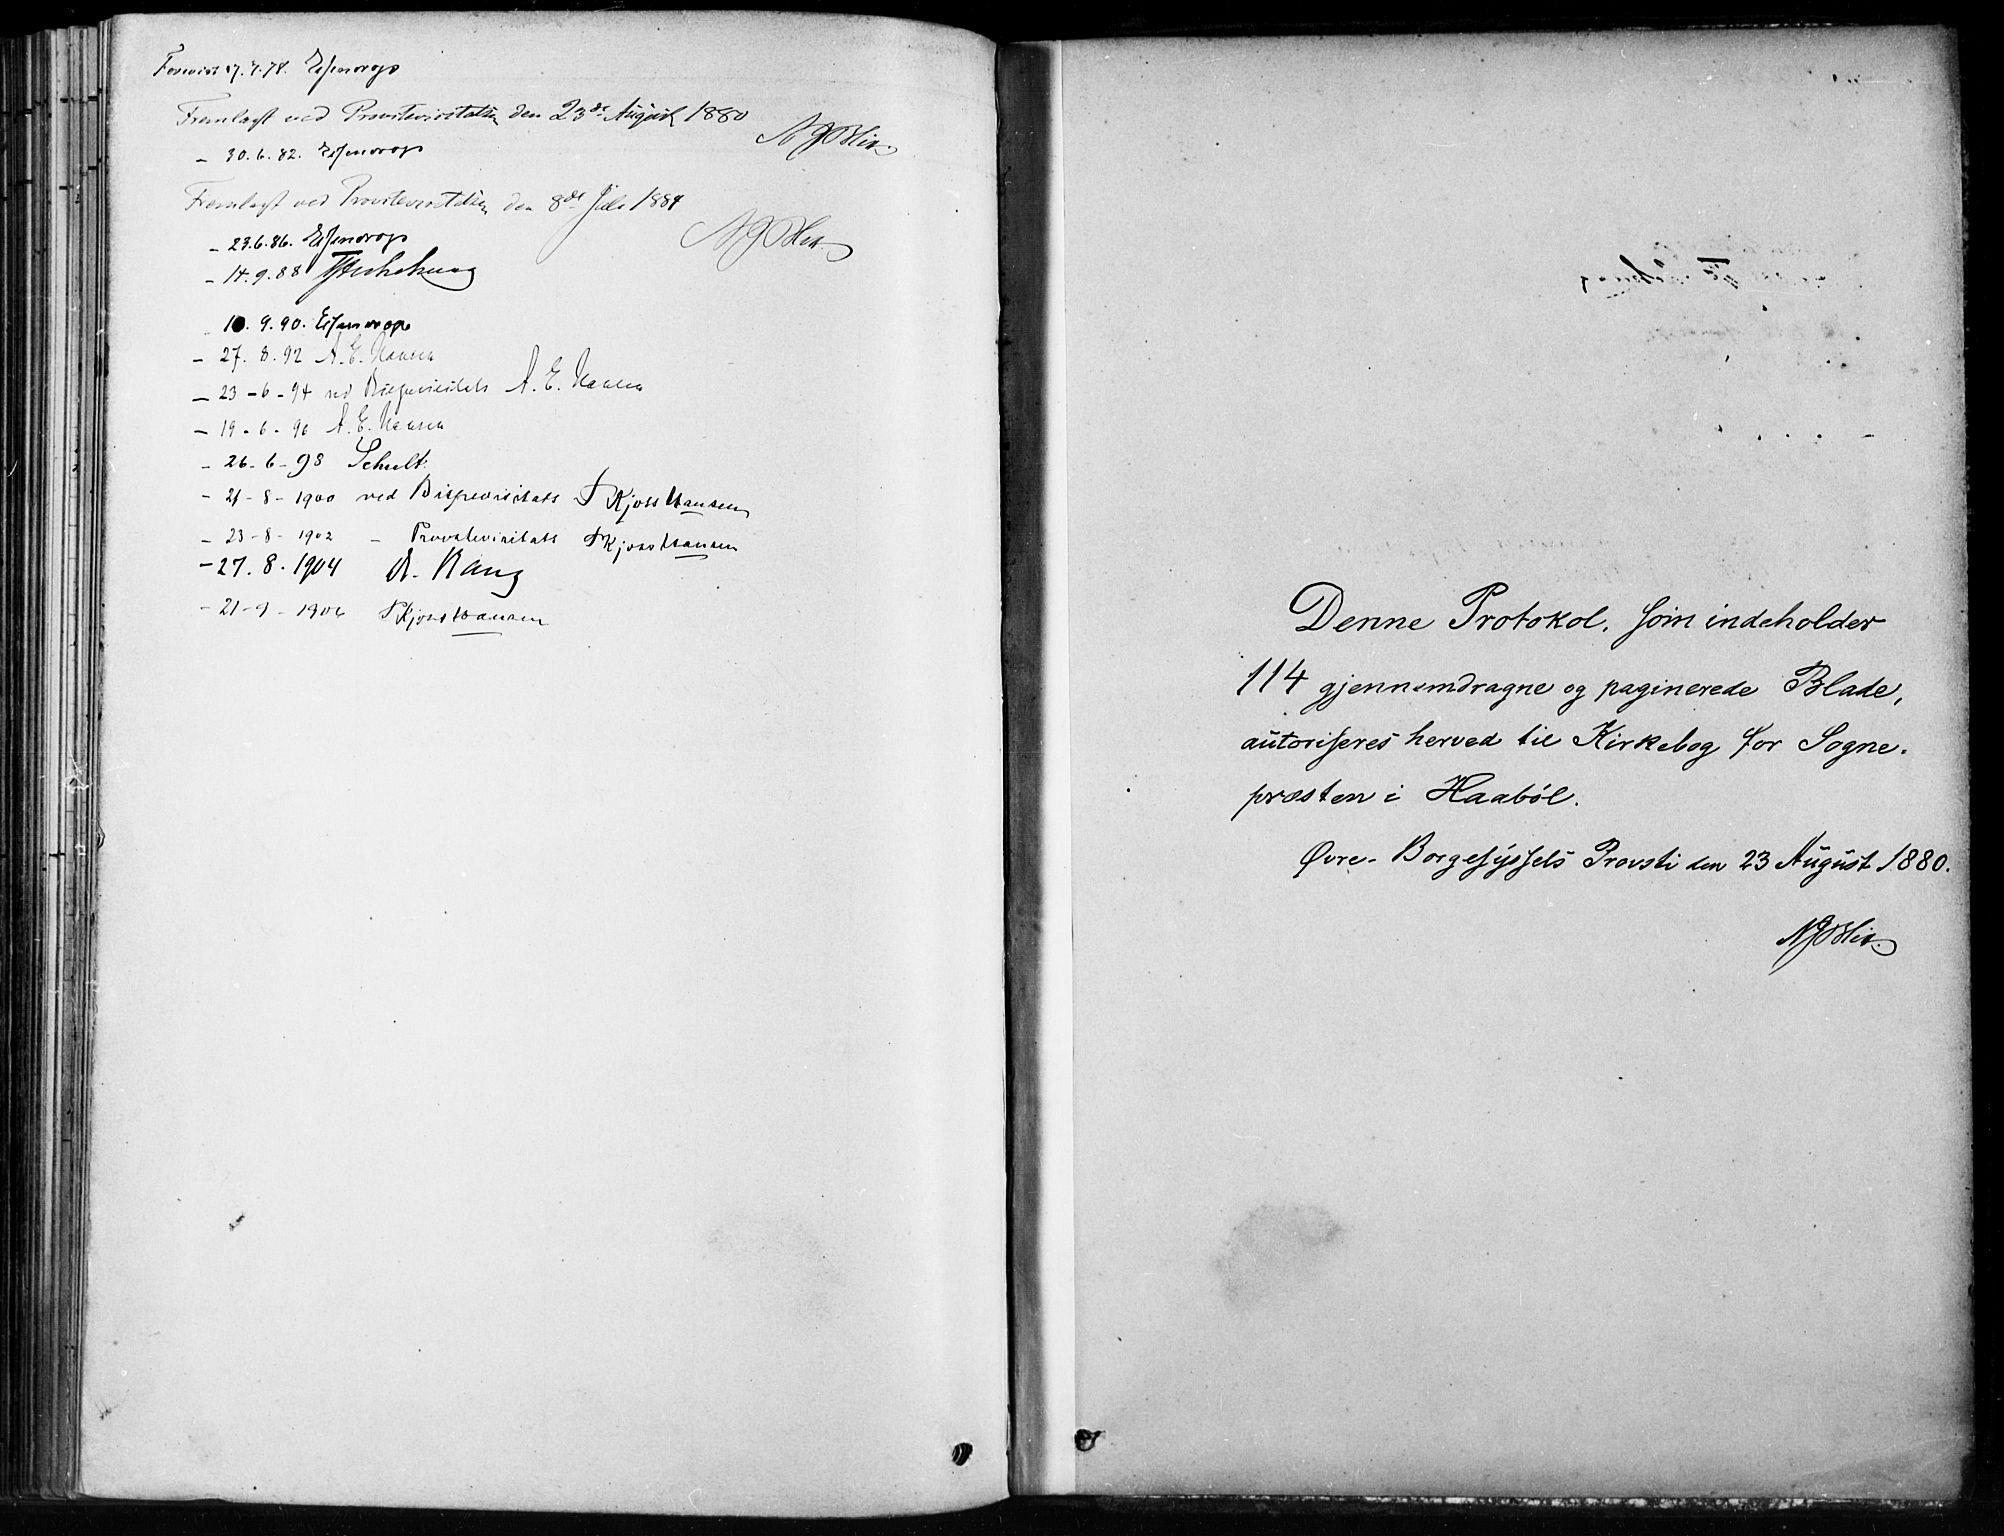 Forevist 17.7.78. Essendrop
Fremlagt ved Provstevisitatsen den 23de August 1880
NJBlix
- 30.6.82. Essendrop
Fremlagt ved Provstevisitatsen den 8de Juli 1884
NJBlix.
- 23.6.86. Essendrop
- 14.9.88
10.9.90. Essendrop
- 27.8.92 A. E. Hansen
- 23-6-94 ved Bispevisitats A. E. Hansen
- 19-6-96 A. E. Hansen
- 26-6-98 Schult
- 21-8-1900 ved Bispevisitats Kjoss Hansen
- 23-8-1902 - Provstevisitats Kjoss Hansen
- 27.8.1904 A. Bang
- 21-9-1906 Kjoss Hansen
Denne Protokol, som indeholder
114 gjennemdragne og paginerede Blade,
autoriseres herved til Kirkebog for Sogne-
præsten i Haabøl.
Øvre-Borgesyssels Provsti den 23 August 1880.
NJBlix.